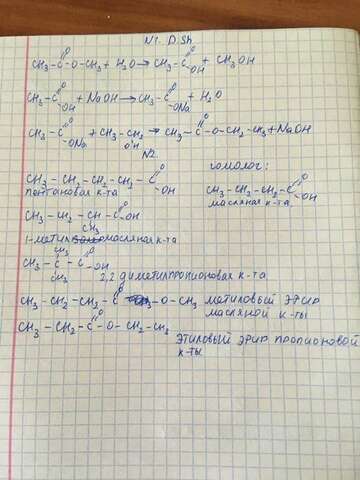 N1. D.Sh.
CH₃-C(=O)-O-CH₃ + H₂O → CH₃-C(=O)-OH + CH₃OH
CH₃-C(=O)-OH + NaOH → CH₃-C(=O)-ONa + H₂O
CH₃-C(=O)-ONa + CH₃-CH₂-OH → CH₃-C(=O)-O-CH₂-CH₃ + NaOH
N2.
гомолог:
CH₃-CH₂-CH₂-CH₂-C(=O)-OH
пентановая к-та
CH₃-CH₂-CH₂-C(=O)-OH
масляная к-та
CH₃-CH₂-CH-C(=O)-OH
CH₃
1-метил масляная к-та
CH₃
CH₃-C-C(=O)-OH
CH₃
2,2 диметилпропионовая к-та
CH₃-CH₂-CH₂-C(=O)-O-CH₃
метиловый эфир
масляной к-ты
CH₃-CH₂-C(=O)-O-CH₂-CH₃
этиловый эфир пропионовой
к-ты